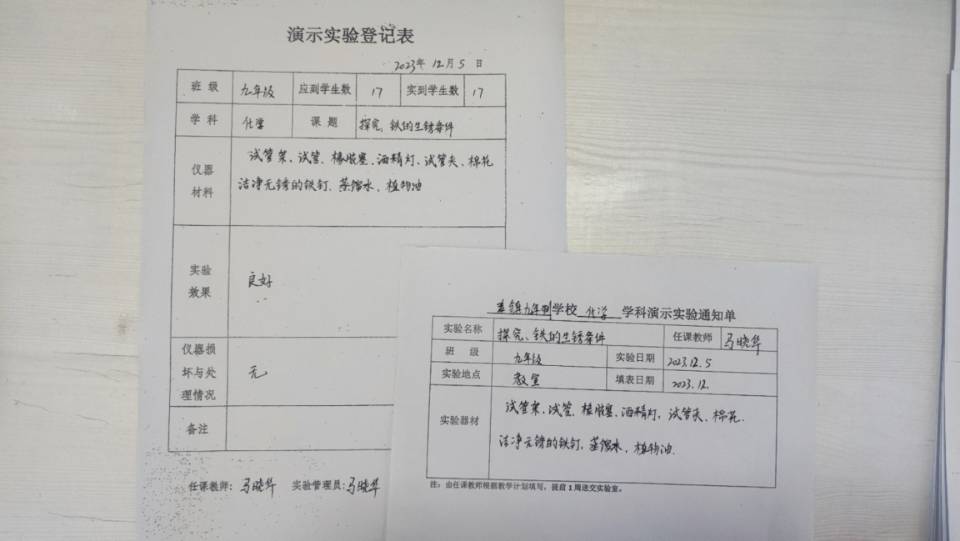 演示实验登记表
2023年 12月 5 日
班 级 九年级 应到学生数 17 实到学生数 17
学 科 化学 课 题 探究、铁的生锈条件
仪器
材料
试管架、试管、橡胶塞、酒精灯、试管夹、棉花
洁净无锈的铁钉、蒸馏水、植物油
实验
效果
良好
仪器损
坏与处
理情况
无
备注
任课教师: 马晓华 实验管理员: 马晓华
镇九年制学校 化学 学科演示实验通知单
实验名称 探究、铁的生锈条件 任课教师 马晓华
班 级 九年级 实验日期 2023.12.5
实验地点 教室 填表日期 2023.12.
实验器材
试管架、试管、橡胶塞、酒精灯、试管夹、棉花、
洁净无锈的铁钉、蒸馏水、植物油.
注:由任课教师根据教学计划填写,提前1周送交实验室。